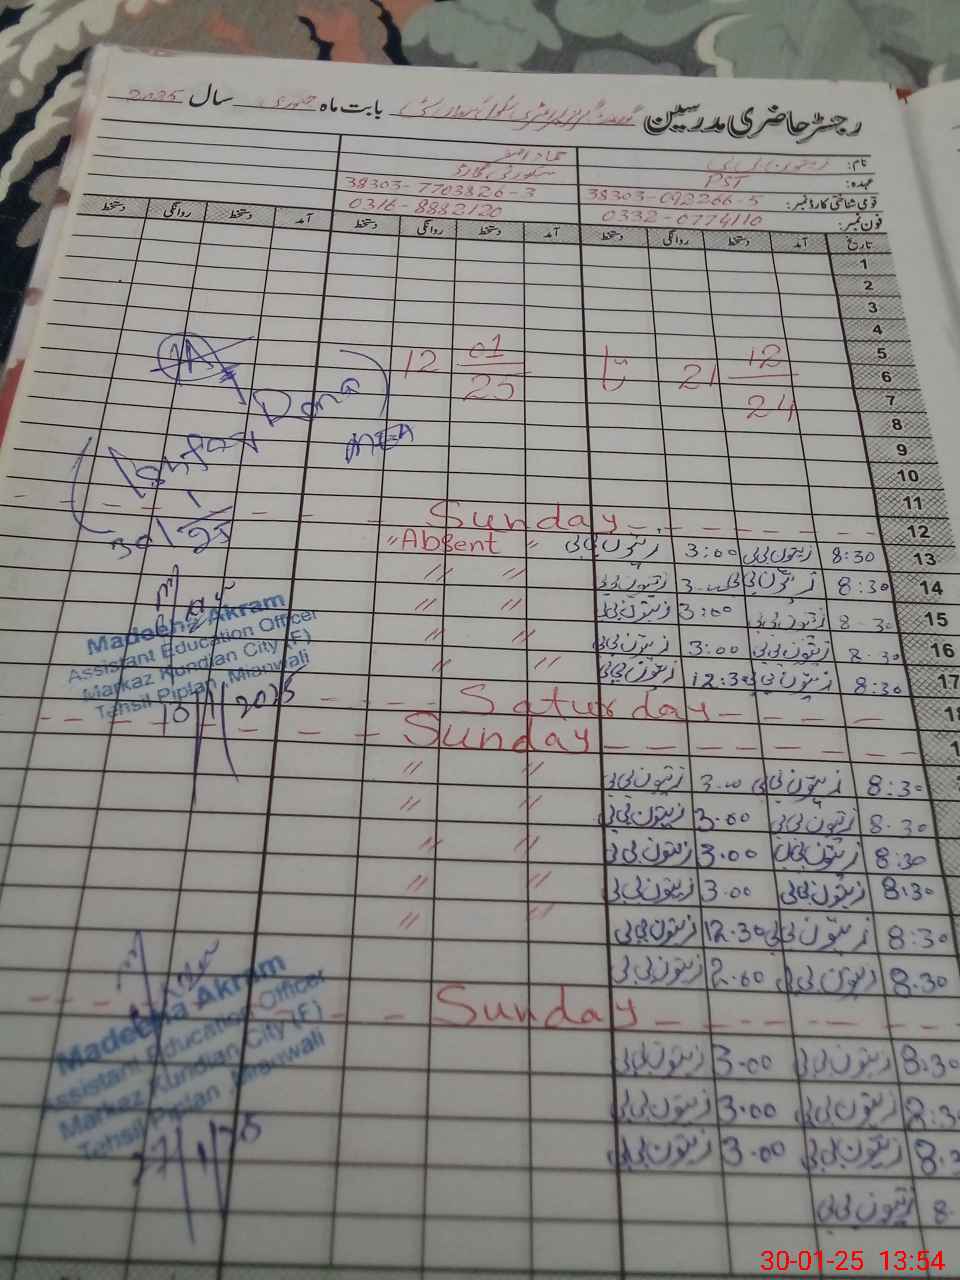 رجسٹر حاضری مدرسین بابت ماہ جنوری سال 2025
نام: زیتون بی بی
عہدہ: PST سکیورٹی گارڈ
قومی شناختی کارڈ نمبر: 38303-092266-5 38303-7703826-3
فون نمبر: 0332-0774110 0316-8882120
تاریخ آمد دستخط روانگی دستخط آمد دستخط روانگی دستخط آمد دستخط روانگی دستخط
1
2
3
4
5 12 01
6 21 تا 12
7 24 25
8
9
10
11
12 Sunday
13 8:30 زیتون بی بی 3:00 زیتون بی بی "Absent"
14 8:30 زیتون بی بی 3:00 زیتون بی بی " "
15 8:30 زیتون بی بی 3:00 زیتون بی بی " "
16 8:30 زیتون بی بی 3:00 زیتون بی بی " "
17 8:30 زیتون بی بی 12:30 زیتون بی بی " "
18 Saturday
Sunday
8:30 زیتون بی بی 3:00 زیتون بی بی " "
8:30 زیتون بی بی 3:00 زیتون بی بی " "
8:30 زیتون بی بی 3:00 زیتون بی بی " "
8:30 زیتون بی بی 3:00 زیتون بی بی " "
8:30 زیتون بی بی 12:30 زیتون بی بی " "
8:30 زیتون بی بی 2:00 زیتون بی بی
Sunday
8:30 زیتون بی بی 3:00 زیتون بی بی
8:30 زیتون بی بی 3:00 زیتون بی بی
8:3 زیتون بی بی 3:00 زیتون بی بی
8. زیتون بی بی
(Ashfaq Dana)
MEA
30/1/25
Madeeha Akram
Assistant Education Officer
Markaz Kundian City (F)
Tehsil Piplan, Mianwali
2025
Madeeha Akram
Assistant Education Officer
Markaz Kundian City (F)
Tehsil Piplan, Mianwali
27/1/25
30-01-25 13:54